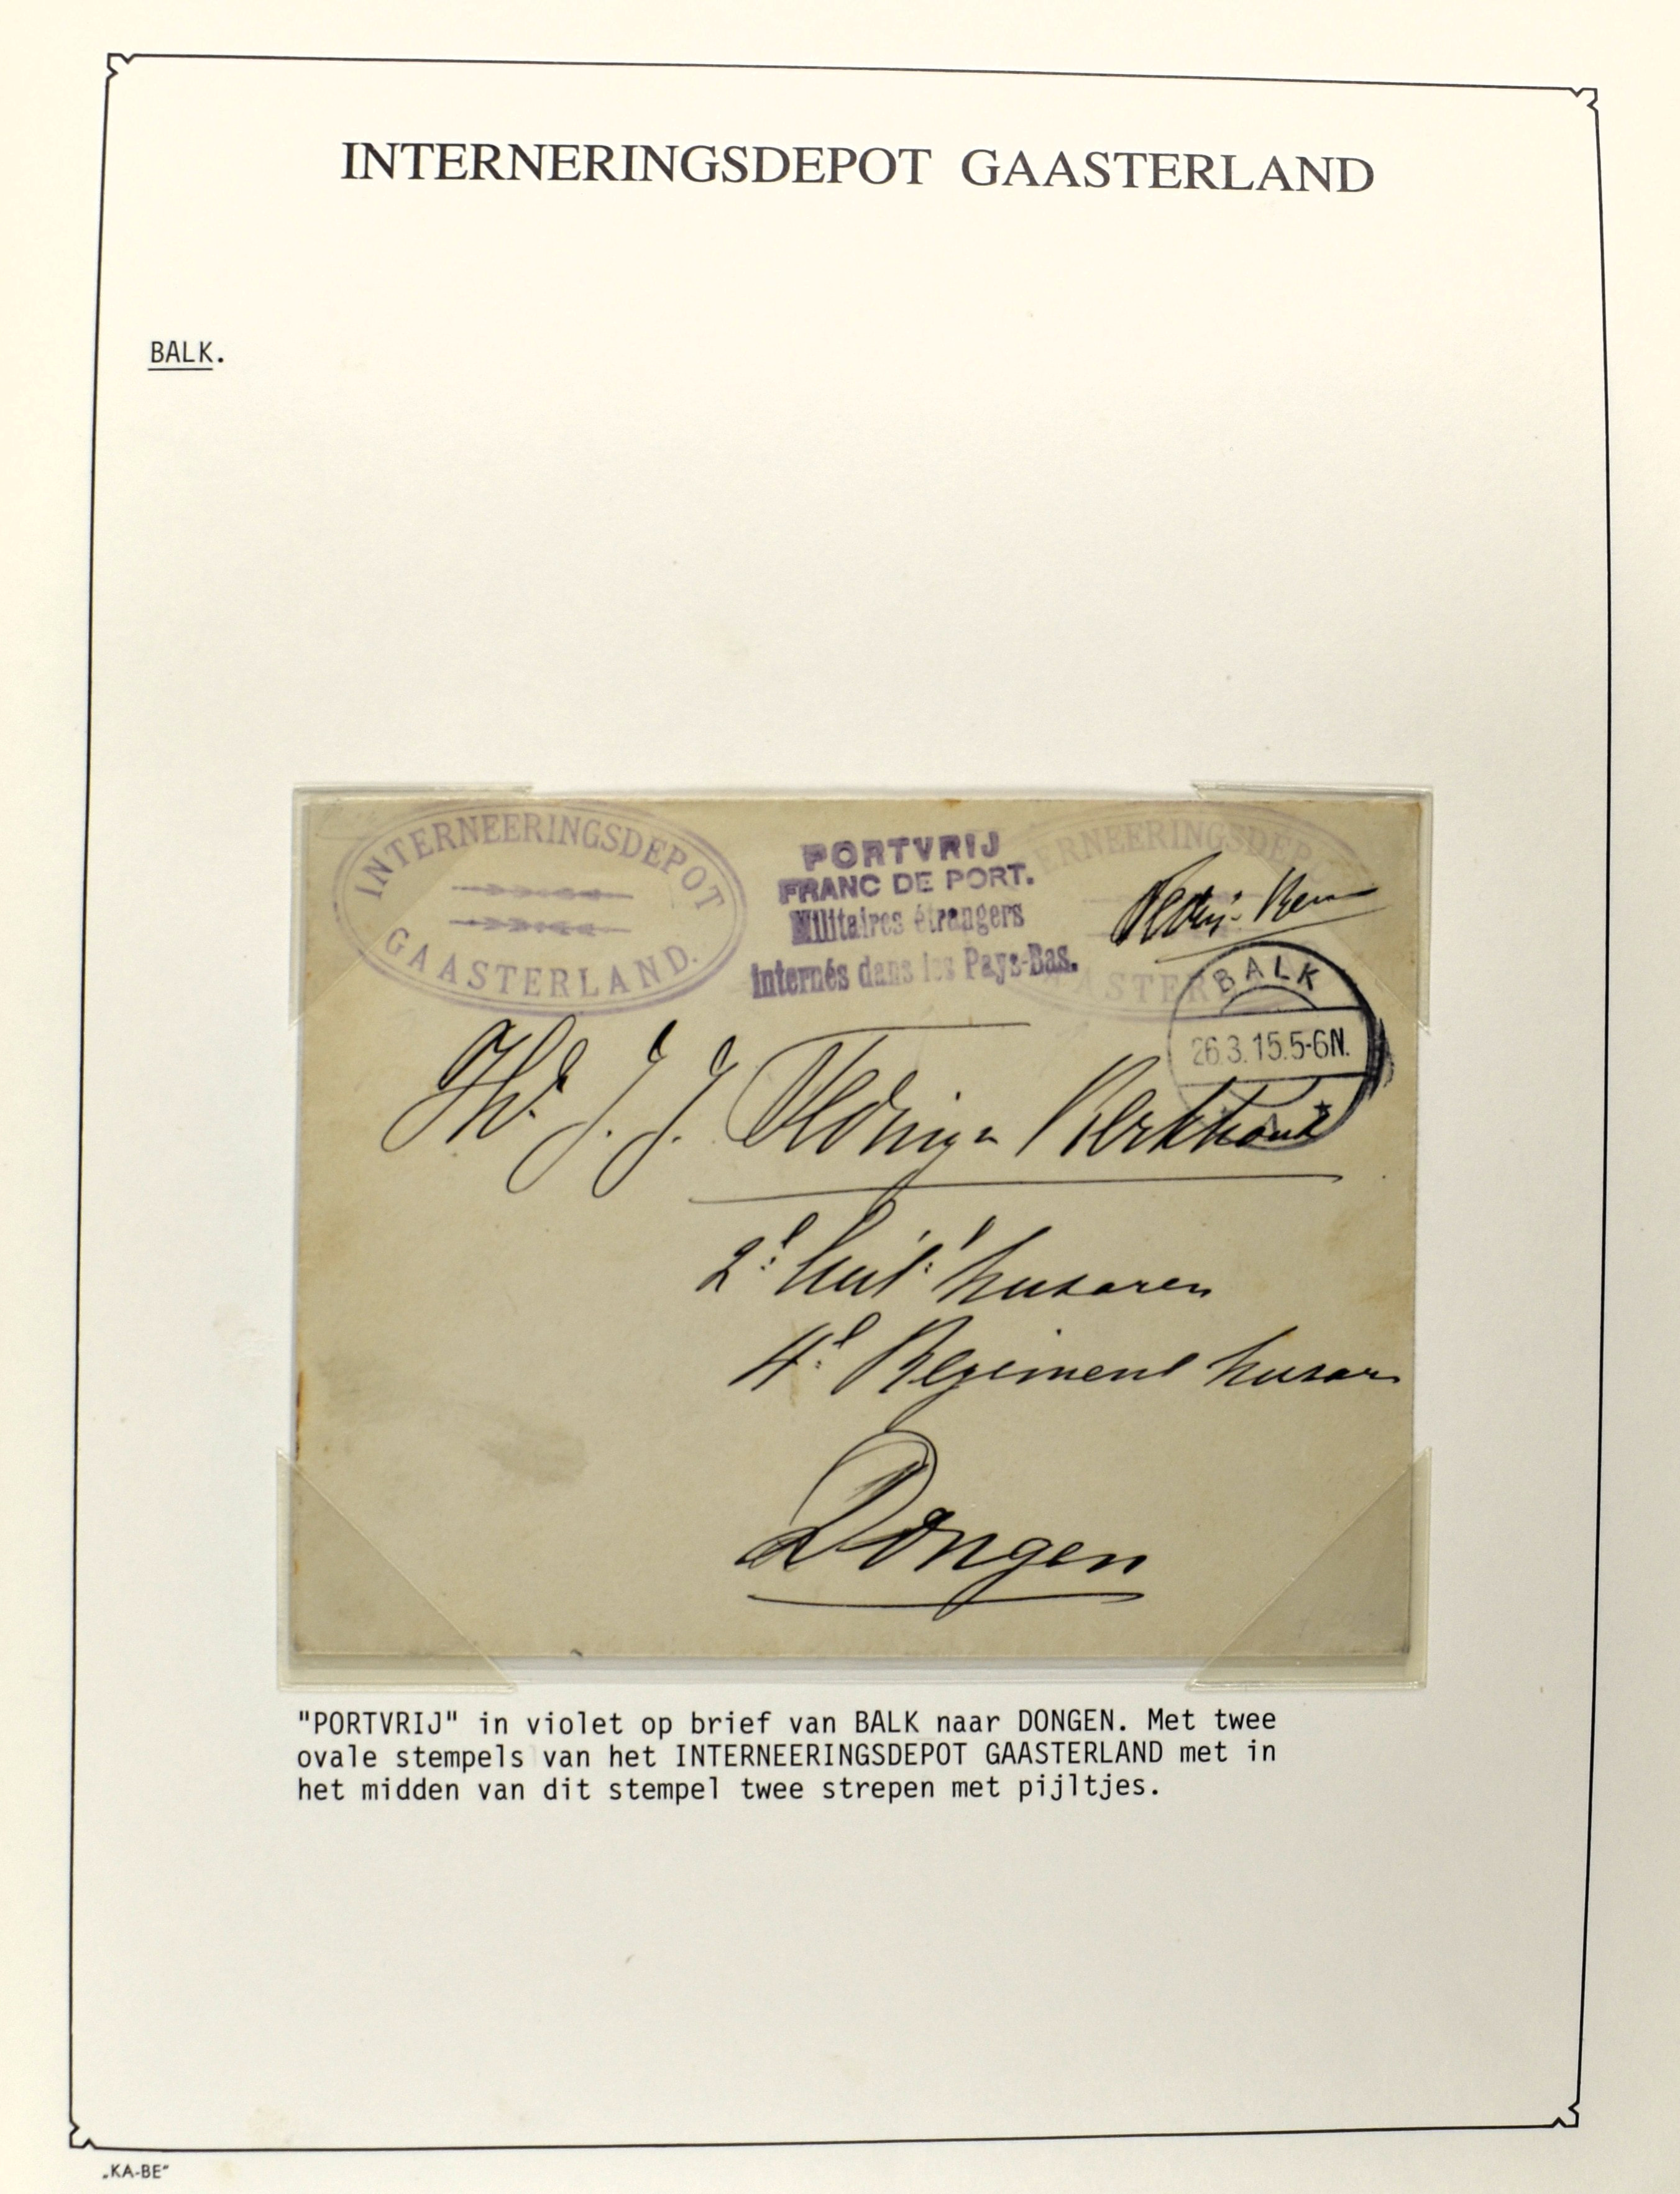 INTERNERINGSDEPOT GAASTERLAND
BALK.
INTERNEERINGSDEPOT
GAASTERLAND.
PORTVRIJ
FRANC DE PORT.
Militaires étrangers
internés dans les Pays-Bas.
ERNEERINGSDEPO
ASTER
BALK
26.3.15.5-6N.
J. J. Kerkhout
2e Luit. husaren
4e Regiment husar
Dongen
"PORTVRIJ" in violet op brief van BALK naar DONGEN. Met twee
ovale stempels van het INTERNEERINGSDEPOT GAASTERLAND met in
het midden van dit stempel twee strepen met pijltjes.
„KA-BE"